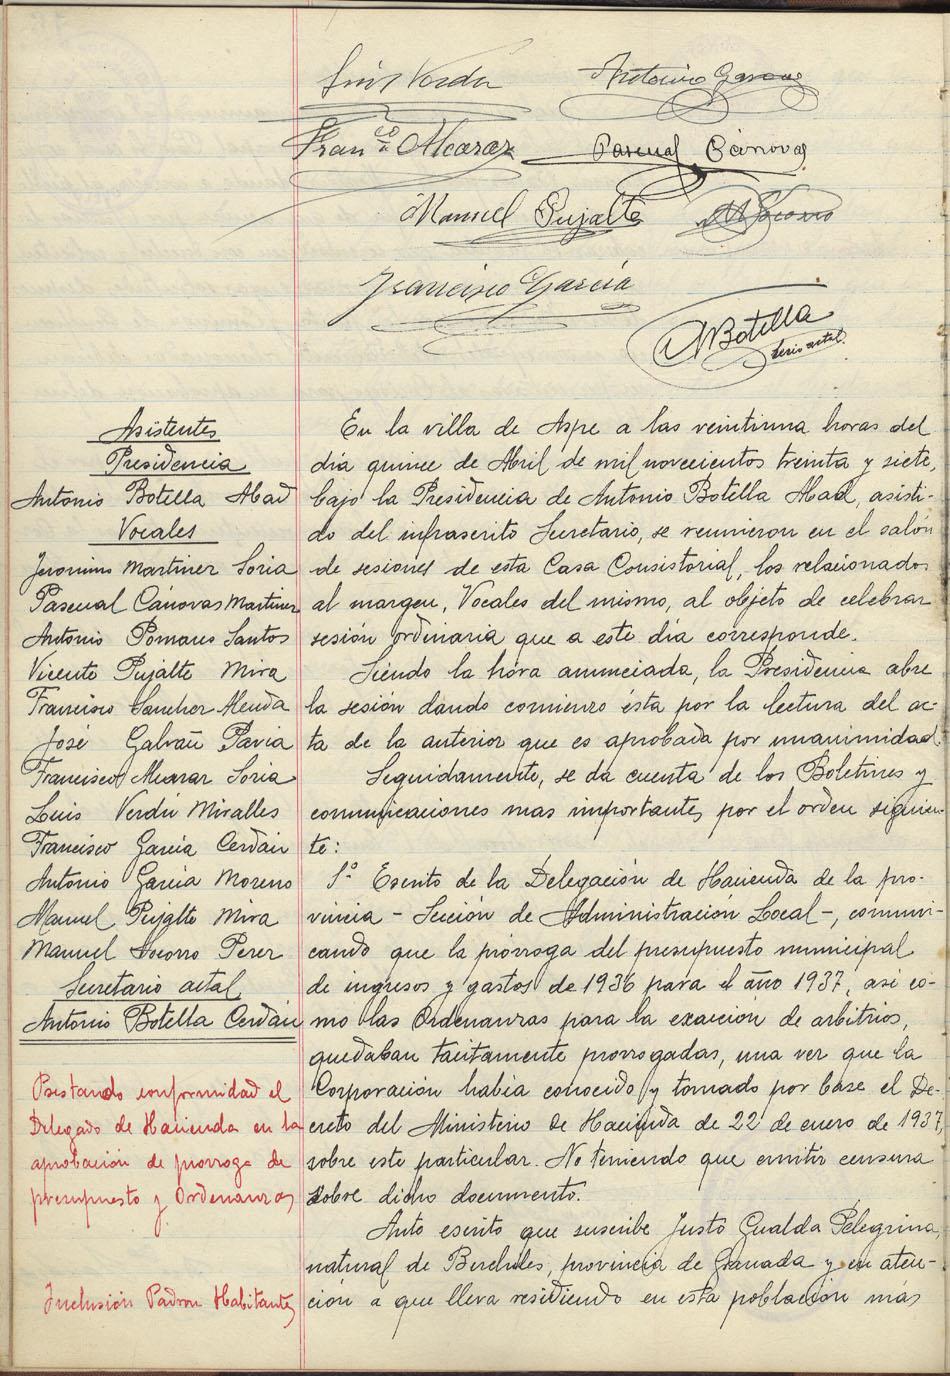 Luis Verdú
Antonio Garcia
Fran.co Alcaraz
Pascual Cánovas
Manuel Pujalte
M Socorro
Francisco García
A Botella
Srio actal.
Asistentes
Presidencia
Antonio Botella Abad
Vocales
Jeronimo Martinez Soria
Pascual Cánovas Martinez
Antonio Pomares Santos
Vicente Pujalte Mira
Francisco Sanchez Alenda
José Galvañ Pavia
Francisco Alcaraz Soria
Luis Verdú Miralles
Francisco García Cerdán
Antonio García Moreno
Manuel Pujalte Mira
Manuel Socorro Perez
Secretario actal
Antonio Botella Cerdán
Prestando conformidad el
Delegado de Hacienda en la
aprobación de prorroga de
presupuesto y Ordenanzas
Inclusión Padron Habitantes
En la villa de Aspe a las veintiuna horas del
día quince de Abril de mil novecientos treinta y siete,
bajo la Presidencia de Antonio Botella Abad, asisti-
do del infrascrito Secretario, se reunieron en el salón
de sesiones de esta Casa Consistorial, los relacionados
al margen, Vocales del mismo, al objeto de celebrar
sesión ordinaria que a este día corresponde.
Siendo la hora anunciada, la Presidencia abre
la sesión dando comienzo ésta por la lectura del ac-
ta de la anterior que es aprobada por unanimidad.
Seguidamente, se da cuenta de los Boletines y
comunicaciones mas importantes, por el orden siguien-
te:
1º Escrito de la Delegación de Hacienda de la pro-
vincia - Sección de Administración Local -, comuni-
cando que la prórroga del presupuesto municipal
de ingresos y gastos de 1936 para el año 1937, asi co-
mo las Ordenanzas para la exacción de arbitrios,
quedaban tacitamente prorrogadas, una vez que la
Corporación habia conocido y tomado por base el De-
creto del Ministerio de Hacienda de 22 de enero de 1937,
sobre este particular. No teniendo que emitir censura
sobre dicho documento.
Auto escrito que suscribe Justo Gualda Pelegrina,
natural de Berchules, provincia de Granada y en aten-
ción a que lleva residiendo en esta población más